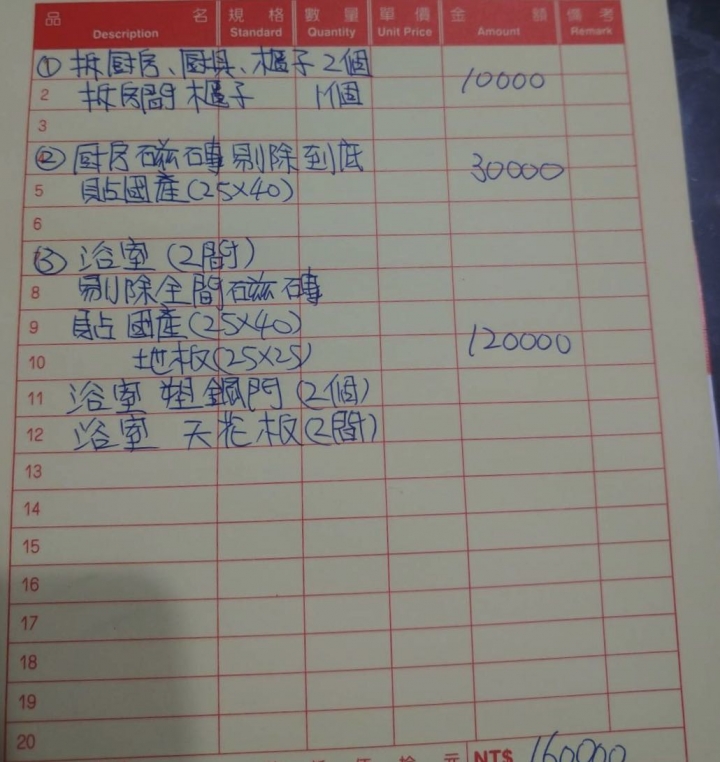 品名 規格 數量 單價 金額 備考
Description Standard Quantity Unit Price Amount Remark
① 拆厨房、厨具、櫃子2個 10000
2 拆房間櫃子 1個
3
② 厨房磁磚剔除到底 30000
5 貼國產(25×40)
6
③ 浴室(2間)
8 剔除全間磁磚
9 貼國產(25×40) 120000
10 地板(25×25)
11 浴室 塑鋼門(2個)
12 浴室 天花板(2間)
13
14
15
16
17
18
19
20
元 NT$ 160000